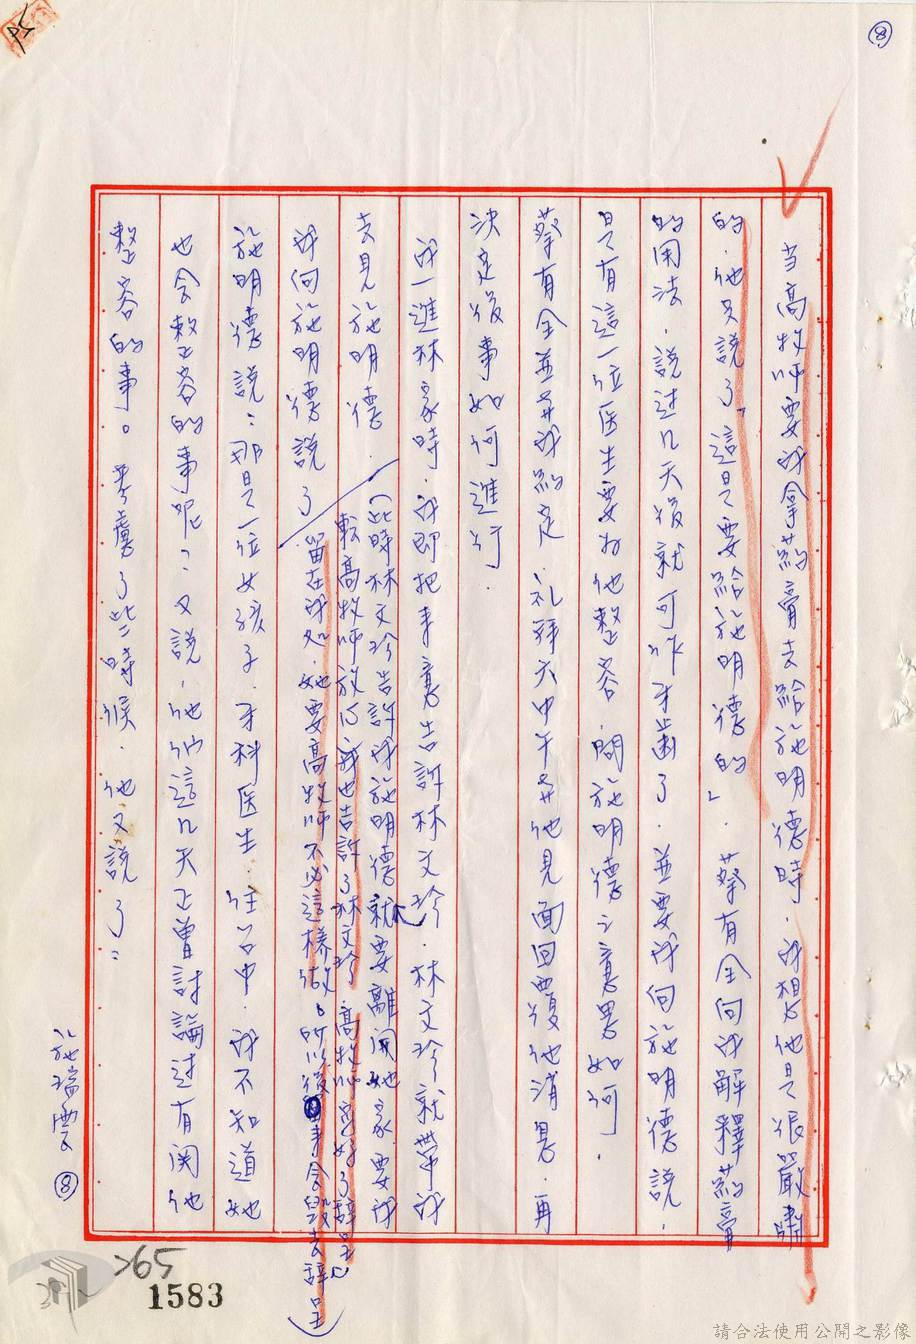 ⑧
当高牧师要我拿葯膏去給施明德時．我想他是很嚴肅
的．他只說了「這是要給施明德的」．蔡有全向我解釋葯膏
的用法．說过几天後就可咋牙齒了．並要我向施明德說．
只有這一位医生要为他整容．問施明德之意思如何．
蔡有全並與我約定．礼拜天中午與他見面回覆他消息．再
決定後事如何進行．
我一進林家時．我即把來意告訴林文珍．林文珍就帶我
去見施明德．
（此時林文珍告訴我施明德就要離開她家．要我
轉高牧师放心．我也告訴了林文珍．高牧师寫好了辞呈
留在我処．她要高牧师不必這樣做．所以後來会毀去辞呈）
我向施明德說了
施明德說：那是一位女孩子．牙科医生．住台中．我不知道她
也会整容的事呢？又說．他们這几天正曾討論过有関他
整容的事。考慮了些時候．他又說了：
施瑞雲⑧
265
1583
請合法使用公開之影像